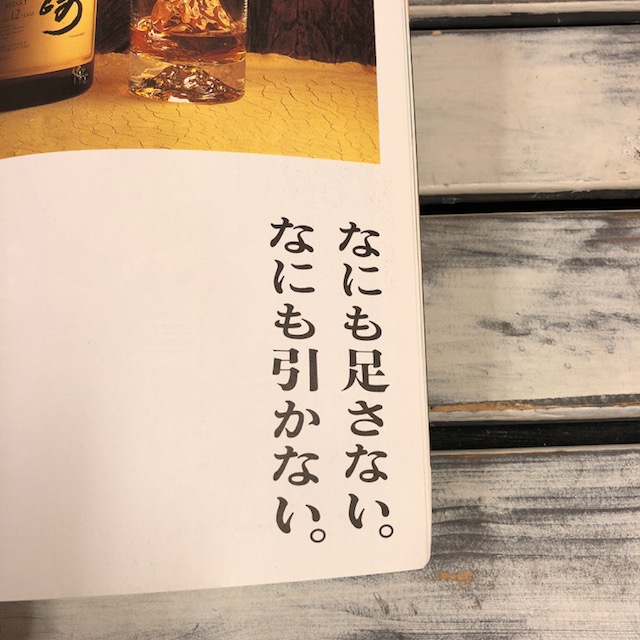 なにも足さない。
なにも引かない。
WHISKY
12